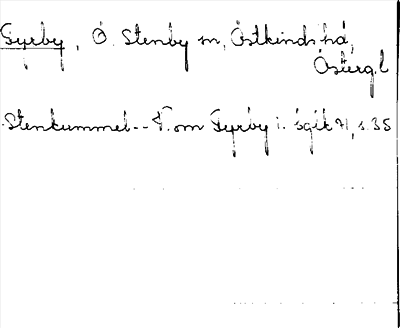 Fyrby, Ö. Stenby sn, Östkinds hd,
Östergl
Stenkummel -- N. om Fyrby i. ägik 71, s. 35